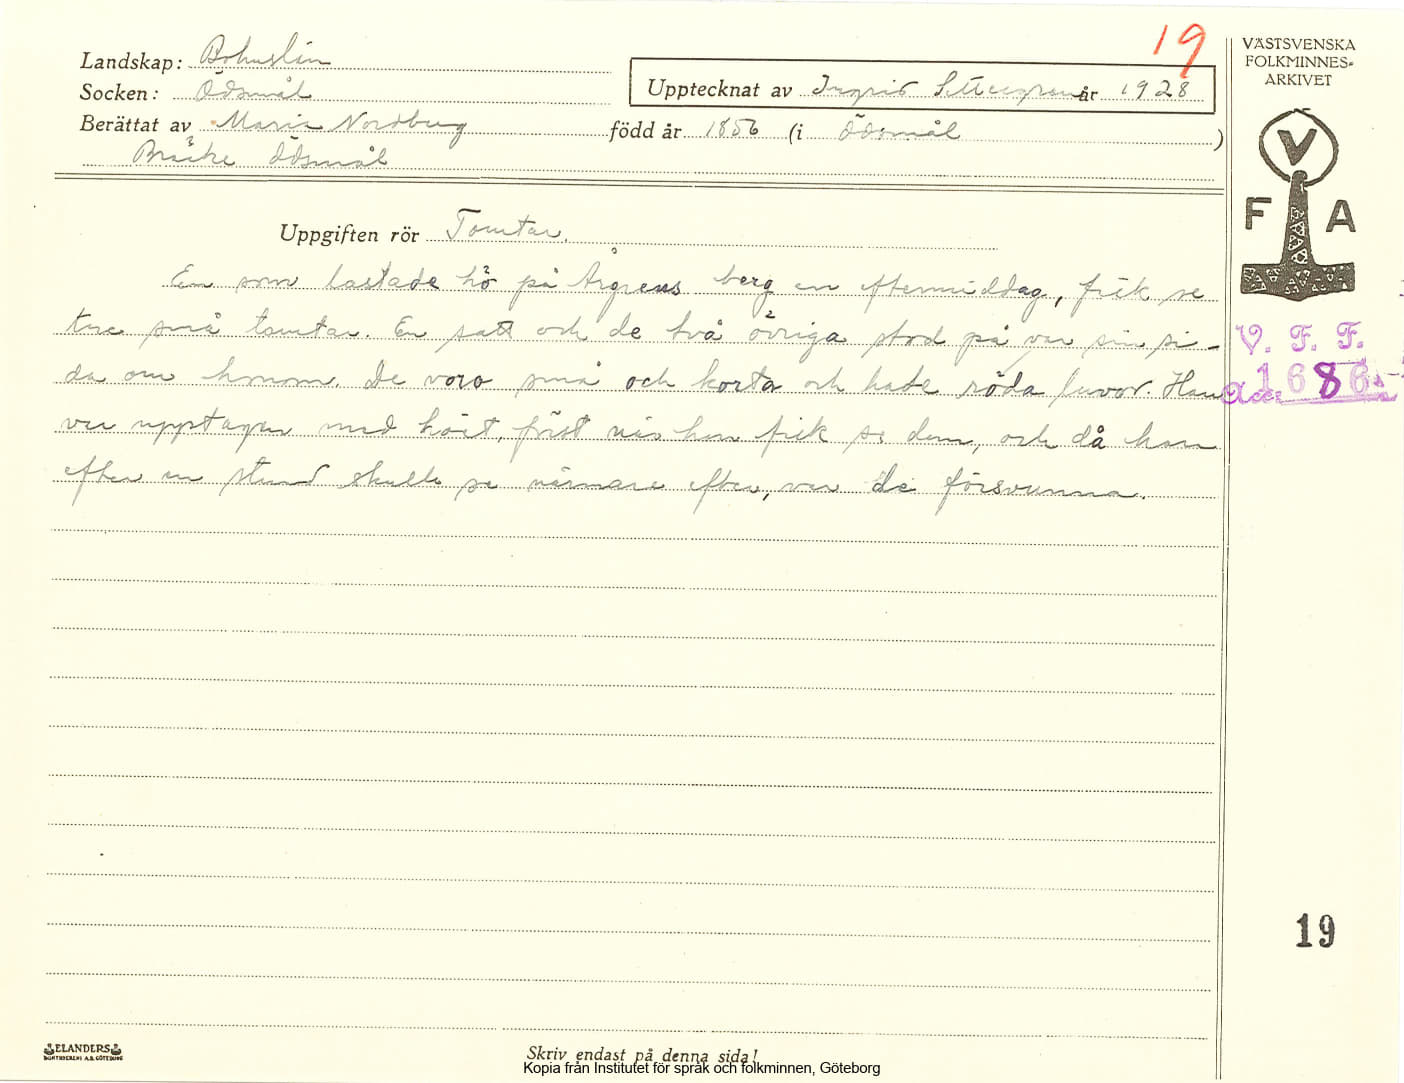 19
Landskap: Bohuslän
Socken: Ödsmål
Upptecknat av Ingrid år 1928
Berättat av Maria Nordberg född år 1856 (i Ödsmål)
Bräcke Ödsmål
VÄSTSVENSKA
FOLKMINNES-
ARKIVET
V
F A
Uppgiften rör Tomtar.
En som lastade hö på Årgrens berg en eftermiddag, fick se
tre små tomtar. En satt och de två övriga stod på var sin si-
da om honom. De voro små och korta och hade röda luvor. Han
var upptagen med höet, först när han fick se dem, och då han
efter en stund skulle se närmare efter, var de försvunna.
V. F. F.
Acc: 1686
19
ELANDERS
BOKTRYCKERI A.B. GÖTEBORG
Skriv endast på denna sida!
Kopia från Institutet för språk och folkminnen, Göteborg